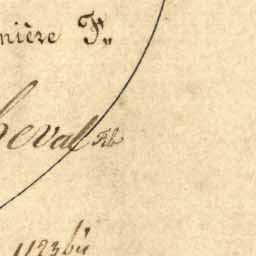 nière F.
heval
1123 bis